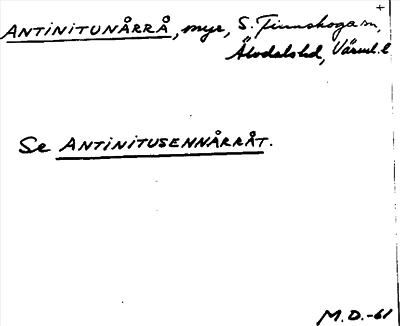 ANTINITUNÅRRÅ, myr, S. Finnskoga sn,
Älvdals hd, Värml. l
Se ANTINITUSENNÅRRÅT.
M.D.-61